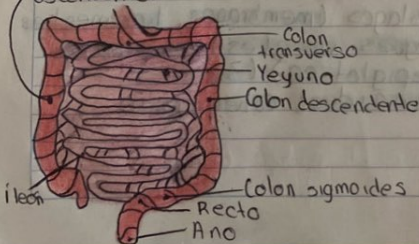 Colon
transverso
Yeyuno
Colon descendente
íleon
Colon sigmoides
Recto
Ano